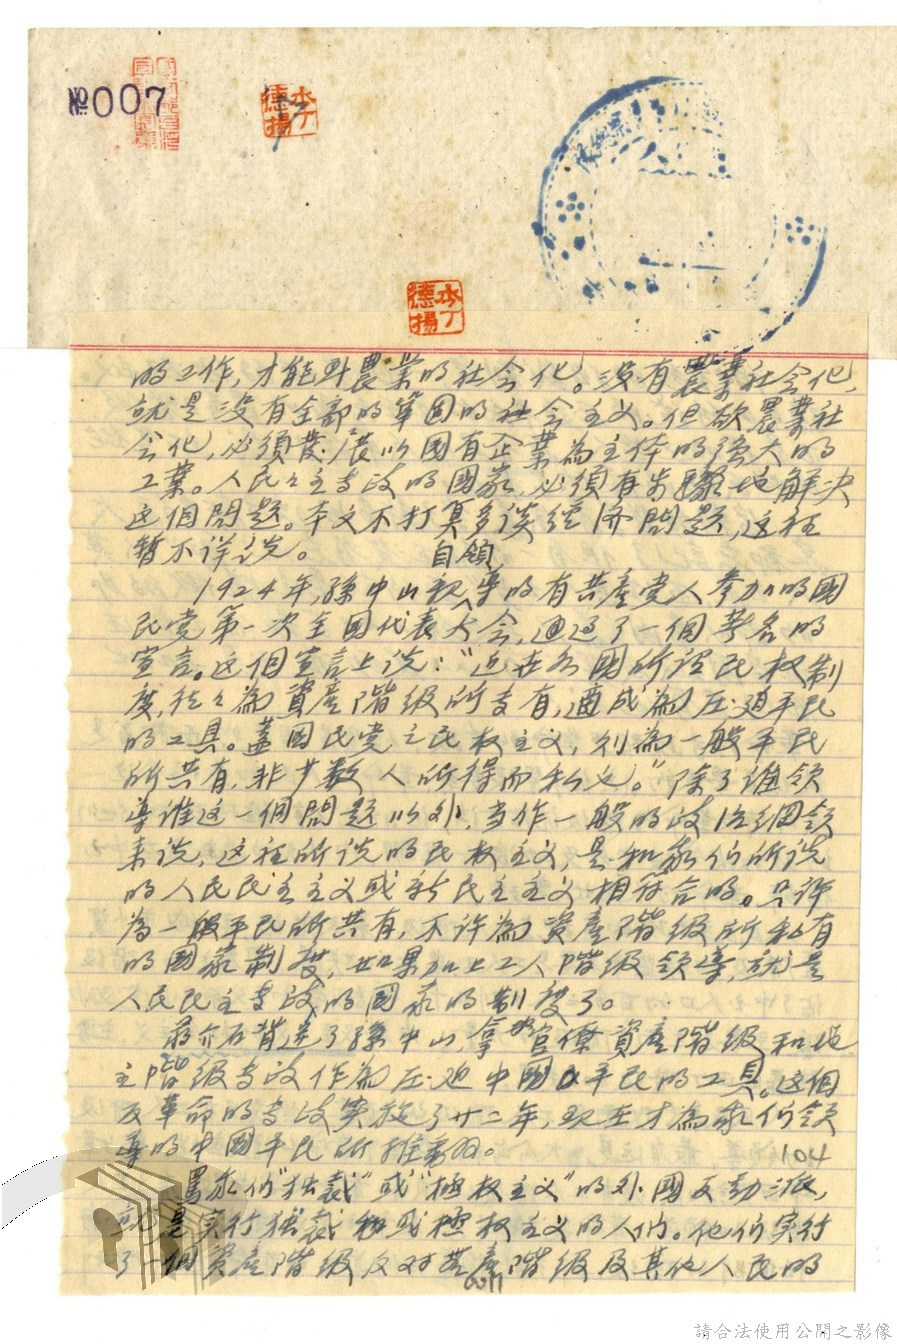 №007
李丁
德揚
李丁
德揚
的工作,才能附農業的社会化。没有農業社会化,
就是没有全部的鞏固的社会主义。但欲農業社
会化,必須發展以國有企業為主体的强大的
工業。人民々主专政的國家,必須有步驟地解决
这個問題。本文不打算多谈经济問題,这裡
暂不详说。
自領
1924年,孫中山親導的有共產党人参加的國
民党第一次全國代表大会,通过了一個著名的
宣言。这個宣言上说:“近世各國所謂民权制
度,往々為資產階級所专有,適成為压迫平民
的工具。蓋國民党之民权主义,则為一般平民
所共有,非少数人所得而私也。”除了谁领
導谁这一個問題以外,当作一般的政治纲领
来说,这裡所说的民权主义,是和我们所说
的人民民主主义或新民主主义相符合的。只许
為一般平民所共有,不许為資產階級所私有
的國家制度,如果加上工人階級领導,就是
人民民主专政的國家的制度了。
蒋介石背速了孫中山,拿官僚資產階級和地
主階級专政作為压迫中國平民的工具。这個
反革命的专政实施了廿二年,现在才為我们领
導的中國平民所推翻。
104
罵我们“独裁”或“極权主义”的外國反动派,
就是实行独裁和或極权主义的人们。他们实行
了一個資產階級反对無產階級及其他人民的
請合法使用公開之影像